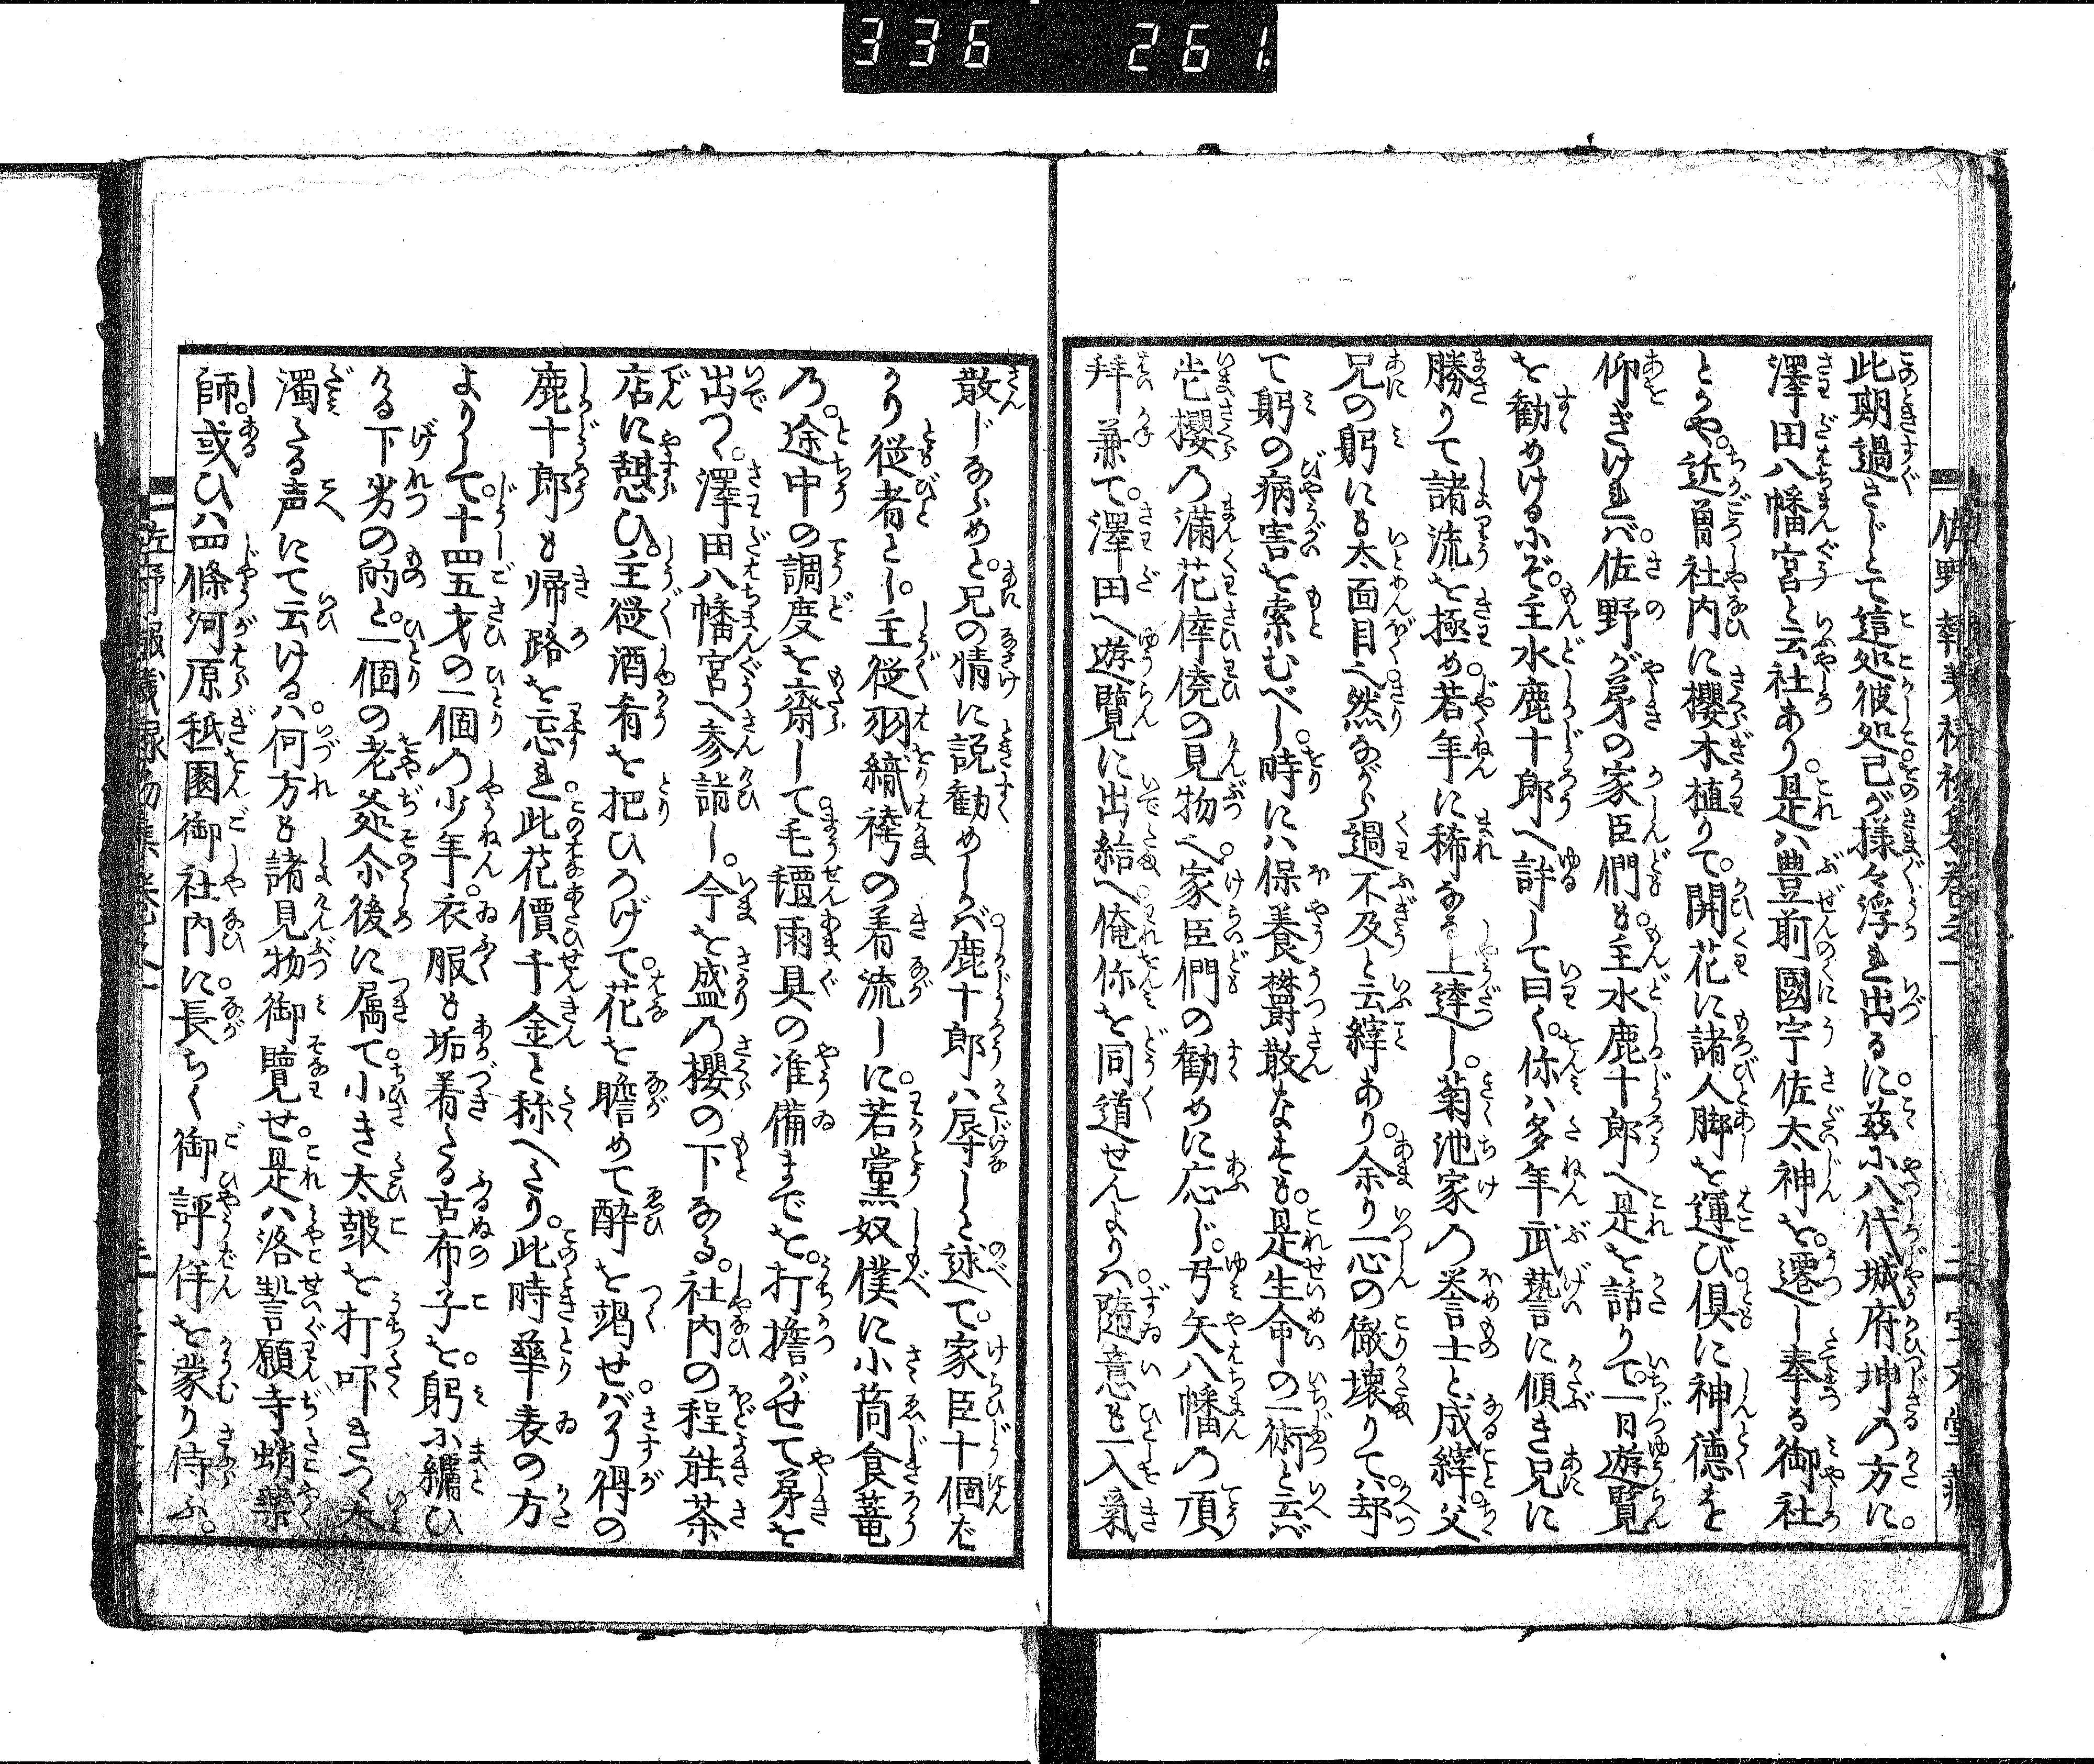 336 261
此期過さじとて這処彼処己が様々浮れ出るに茲に八代城府坤の方に。
澤田八幡宮と云社あり。是ハ豊前國宇佐太神を。遷し奉る御社
とかや。近曽社内に櫻木植りて。開花に諸人脚を運び。倶に神徳を
仰ぎけれバ。佐野が弟の家臣們も。主水鹿十郎へ是を話りて。一日遊覧
を勧めけるにぞ。主水鹿十郎へ許して曰く。你ハ多年武藝に傾き兄に
勝りて諸流を極め。若年に稀なる上達し。菊池家の誉士と成縡。父
兄の躬にも太面目也。然ながら過不及と云縡あり。余り一心の傲壊りてハ。却
て躬の病害を索むべし。時にハ保養欝散なすも。是生命の一術と云バ
櫻の満花倖僥の見物也。家臣們の勧めに応じ。弓矢八幡の頂
拜兼て。澤田へ遊覧に出給へ。俺你を同道せんよりハ。随意も一入氣
散じならめと。兄の情に説勧めしかバ。鹿十郎ハ辱しと述て。家臣十個ば
かり従者とし。主従羽織袴の着流しに。若黨奴僕に小筒食篭
の。途中の調度を齎して。毛氈雨具の准備までを。打擔がせて弟を
出つ。澤田八幡宮へ参詣し。今を盛の櫻の下なる。社内の程能茶
店に憩ひ。主従酒肴を把ひろげて。花を瞻めて酔を竭せバ。流得の
鹿十郎も帰路を忘れ。此花價千金と称へたり。此時華表の方
よりして。十四五才の一個の少年。衣服も垢着たる古布子を。躬に纏ひ
たる下劣の的と。一個の老爺尒後に属て。小き太皷を打叩きつゝ太
濁たる声にて云けるハ。何方も諸見物御覧せ。是ハ洛誓願寺蛸藥
師。或ひハ四條河原祗園御社内に。長らく御評伴を蒙り侍ふ。